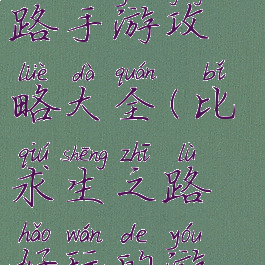 路手游攻
lüè dà quán bǐ
略大全(比
qiú shēng zhī lù
求生之路
hǎo wán de yóu
好玩的游